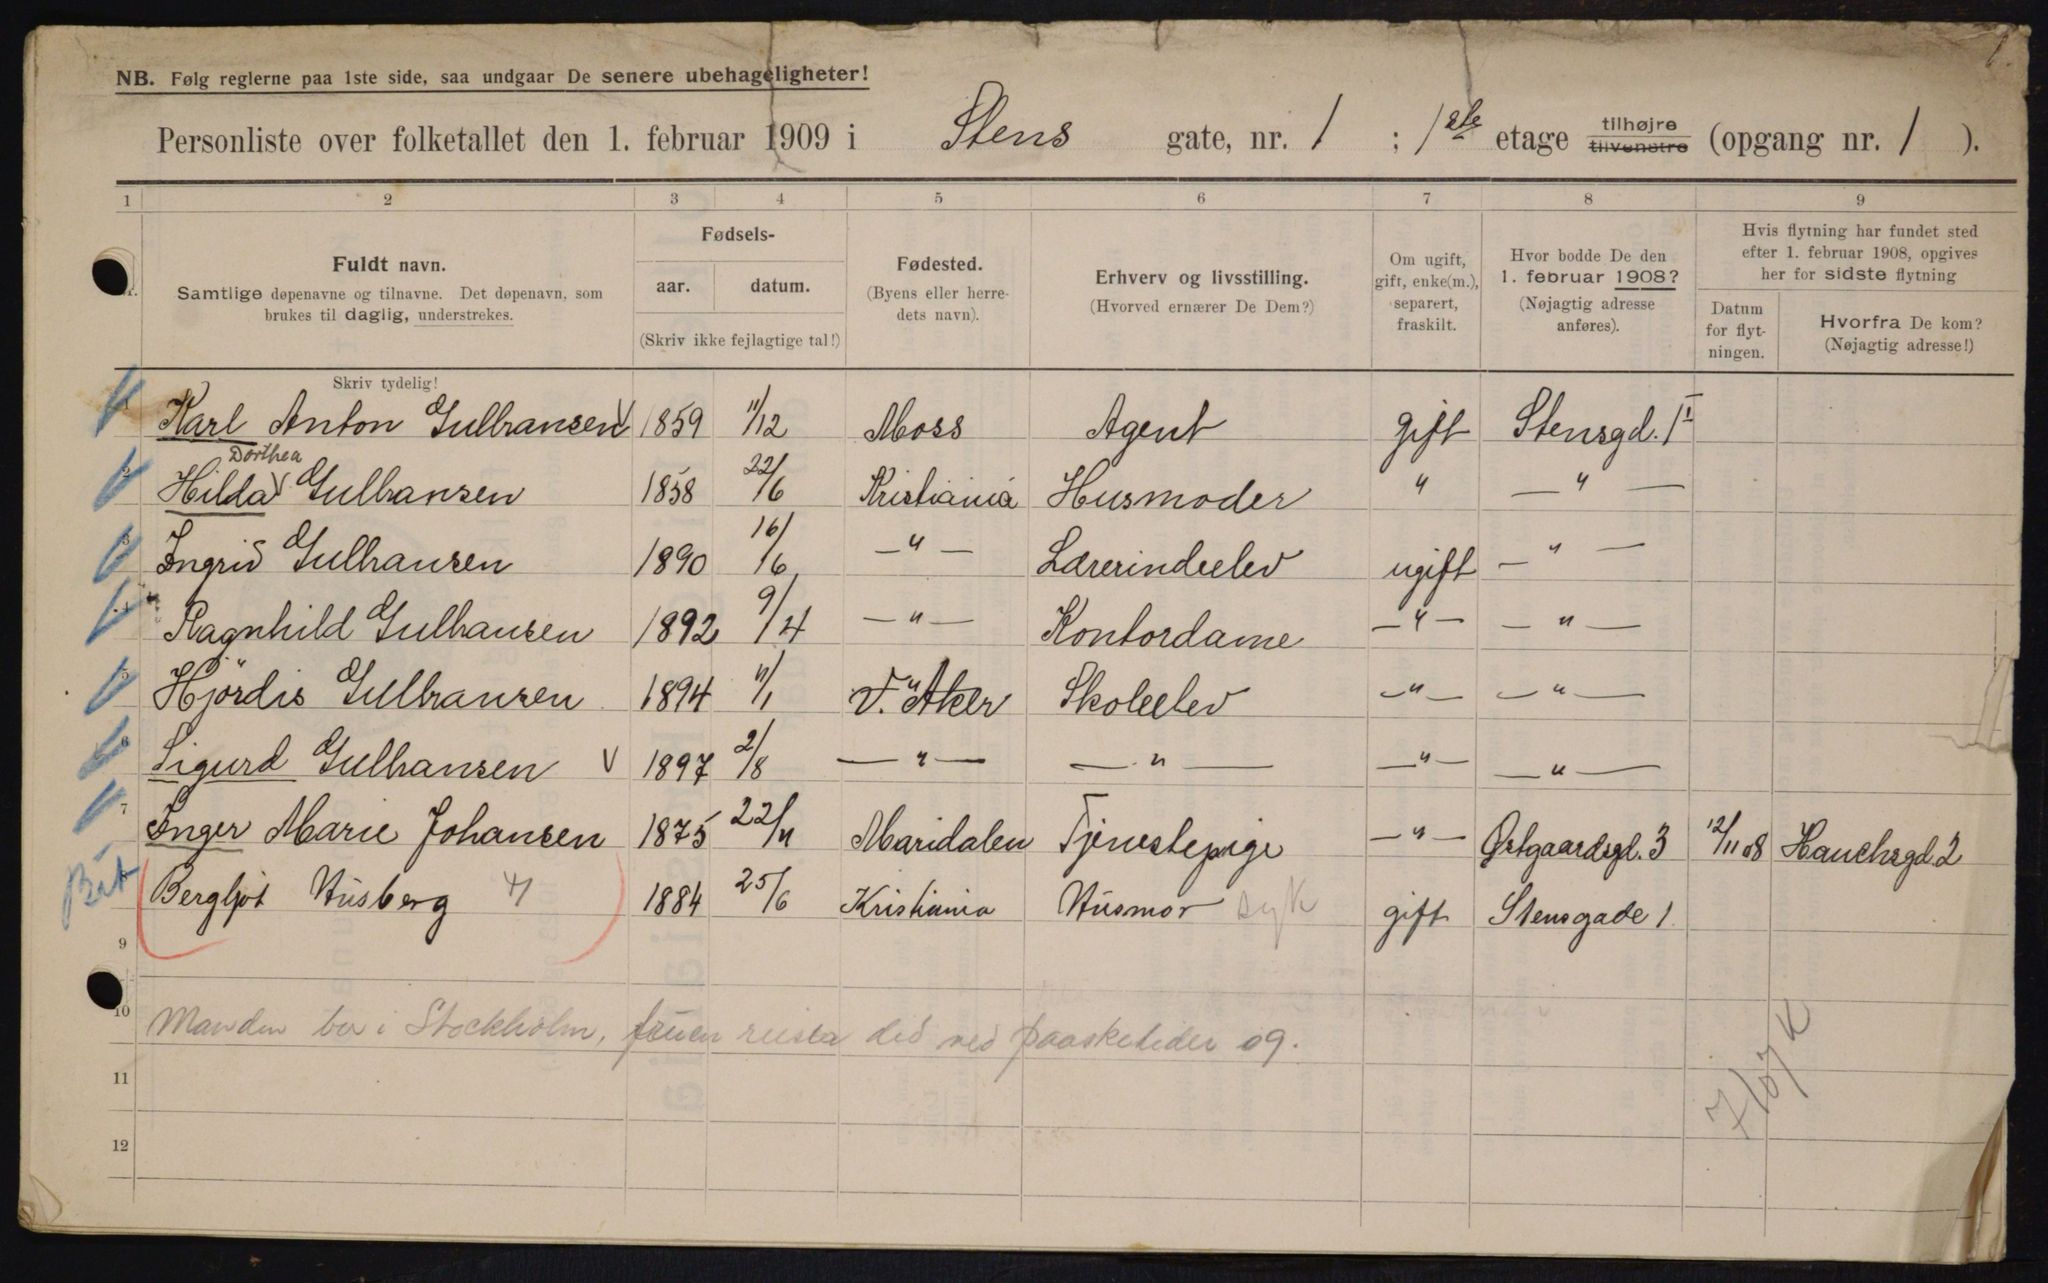 NB. Følg reglerne paa 1ste side, saa undgaar De senere ubehageligheter!
Personliste over folketallet den 1. februar 1909 i Stens gate, nr. 1 ; 1ste etage tilhøjre tilvenstre (opgang nr. 1 ).
1 2 3 4 5 6 7 8 9
Fuldt navn.
Samtlige døpenavne og tilnavne. Det døpenavn, som
brukes til daglig, understrekes.
Skriv tydelig!
Fødsels-
aar. datum.
(Skriv ikke fejlagtige tal!)
Fødested.
(Byens eller herre-
dets navn).
Erhverv og livsstilling.
(Hvorved ernærer De Dem?)
Om ugift,
gift, enke(m.),
separert,
fraskilt.
Hvor bodde De den
1. februar 1908?
(Nøjagtig adresse
anføres).
Hvis flytning har fundet sted
efter 1. februar 1908, opgives
her for sidste flytning
Datum
for flyt-
ningen.
Hvorfra De kom?
(Nøjagtig adresse!)
1 Karl Anton Gulbransen 1859 11/12 Moss Agent gift Stensgd. 1 I
Dorthea
2 Hilda Gulbransen 1858 22/6 Kristiania Husmoder " — " —
3 Ingrid Gulbransen 1890 16/6 — " — Lærerindeelev ugift — " —
4 Ragnhild Gulbransen 1892 9/4 — " — Kontordame — " — — " —
5 Hjördis Gulbransen 1894 11/1 V. Aker Skoleelev — " — — " —
6 Sigurd Gulbransen V 1897 2/8 — " — — " — — " — — " —
7 Inger Marie Johansen 1875 22/11 Maridalen Tjenestepige — " — Østgaardsgd. 3 12/11 08 Hauchsgd. 2
Bergljot Husberg 1884 25/6 Kristiania Husmor syk gift Stensgade 1
9
10 Manden bor i Stockholm, fruen reiste did ved paasketider 09.
11
12